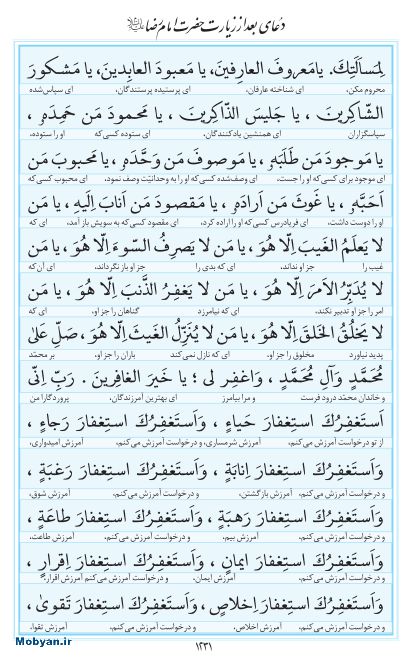 دعای بعد از زیارت حضرت امام رضا علیه‌السلام
لِمَسأَلَتِكَ. یامَعروفَ العارِفینَ، یا مَعبودَ العابِدینَ، یا مَشكورَ
محروم مکن، ای شناخته عارفان، ای پرستیده پرستندگان، ای سپاس‌شده
الشّاكِرینَ ، یا جَلیسَ الذّاكِرینَ ، یا مَحمودَ مَن حَمِدَهُ ،
سپاسگزاران ای همنشین یادکنندگان، ای ستوده کسی‌که او را ستوده،
یا مَوجودَ مَن طَلَبَهُ ، یا مَوصوفَ مَن وَحَّدَهُ ، یا مَحبوبَ مَن
ای موجود برای کسی‌که او را جست، ای وصف‌شده کسی‌که او را به وحدانیّت وصف نمود، ای محبوب کسی‌که
اَحَبَّهُ ، یا غَوثَ مَن اَرادَهُ ، یا مَقصودَ مَن اَنابَ اِلَیهِ ، یا مَن
او را دوست داشت، ای فریادرس کسی‌که او را اراده کرد، ای مقصود کسی‌که به سویش باز آمد، ای‌که
لا یَعلَمُ الغَیبَ اِلّا هُوَ ، یا مَن لا یَصرِفُ السّوءَ اِلّا هُوَ ، یا مَن
غیب را جز او نداند، ای که بدی را جز او باز نگرداند، ای آن‌که
لا یُدَبِّرُ الاَمرَ اِلّا هُوَ ، یا مَن لا یَغفِرُ الذَّنبَ اِلّا هُوَ ، یا مَن
امر را جز او تدبیر نکند، ای‌که نیامرزد گناهان را جز او، ای که
لا یَخلُقُ الخَلقَ اِلّا هُوَ ، یا مَن لا یُنَزِّلُ الغَیثَ اِلّا هُوَ ، صَلِّ عَلیٰ
پدید نیاورد مخلوق را جز او، ای‌که نازل نمی‌کند باران را جز او، بر محمّد
مُحَمَّدٍ وَآلِ مُحَمَّدٍ ، وَاغفِر لی ؛ یا خَیرَ الغافِرینَ . رَبِّ اِنّی
و خاندان محمّد درود فرست و مرا بیامرز ای بهترین آمرزندگان، پروردگارا من
اَستَغفِرُكَ استِغفارَ حَیاءٍ ، وَاَستَغفِرُكَ استِغفارَ رَجاءٍ ،
از تو درخواست آمرزش می‌کنم، آمرزش شرمساری، و درخواست آمرزش می‌کنم، آمرزش امیدواری،
وَاَستَغفِرُكَ استِغفارَ اِنابَةٍ ، وَاَستَغفِرُكَ استِغفارَ رَغبَةٍ ،
و درخواست آمرزش می‌کنم، آمرزش بازگشتن، و درخواست آمرزش می‌کنم، آمرزش شوق،
وَاَستَغفِرُكَ استِغفارَ رَهبَةٍ ، وَاَستَغفِرُكَ استِغفارَ طاعَةٍ ،
و درخواست آمرزش می‌کنم، آمرزش بیم، و درخواست آمرزش می‌کنم، آمرزش طاعت،
وَاَستَغفِرُكَ استِغفارَ ایمانٍ ، وَاَستَغفِرُكَ استِغفارَ اِقرارٍ ،
و درخواست آمرزش می‌کنم، آمرزش ایمان، و درخواست آمرزش می‌کنم آمرزش اقرار،
وَاَستَغفِرُكَ استِغفارَ اِخلاصٍ ، وَاَستَغفِرُكَ استِغفارَ تَقویٰ ،
و درخواست آمرزش می‌کنم، آمرزش اخلاص، و درخواست آمرزش می‌کنم، آمرزش تقوا،
۱۲۳۱
Mobyan.ir